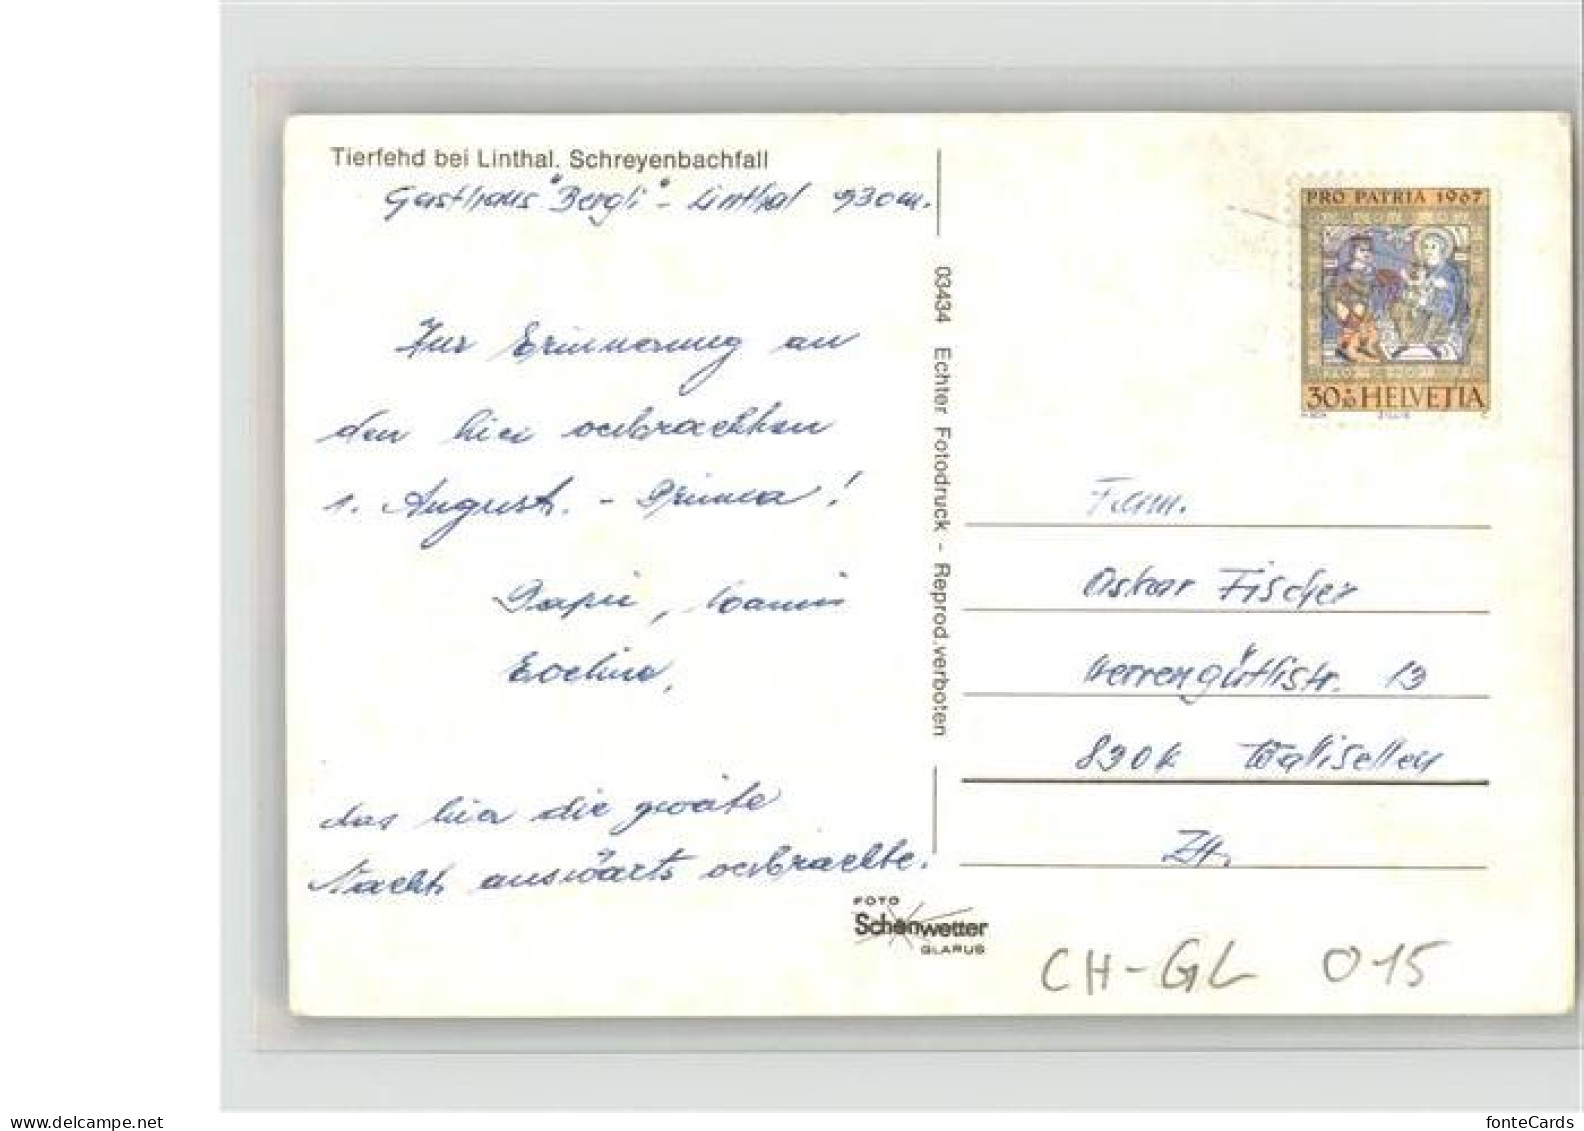 Tierfehd bei Linthal. Schreyenbachfall
Gasthaus "Bergli" - Linthal 930 m.
Zur Erinnerung an
den hier verbrachten
1. August. - Prima!
Papi, Mami
Eveline,
das hier die zweite
Nacht auswärts verbrachte.
03434 Echter Fotodruck - Reprod. verboten
FOTO
Schönwetter
GLARUS
PRO PATRIA 1967
30+10 HELVETIA
Fam.
Oskar Fischer
Herrengütlistr. 13
8304 Wallisellen
ZH.
CH-GL 015
delcampe.net
fonteCards